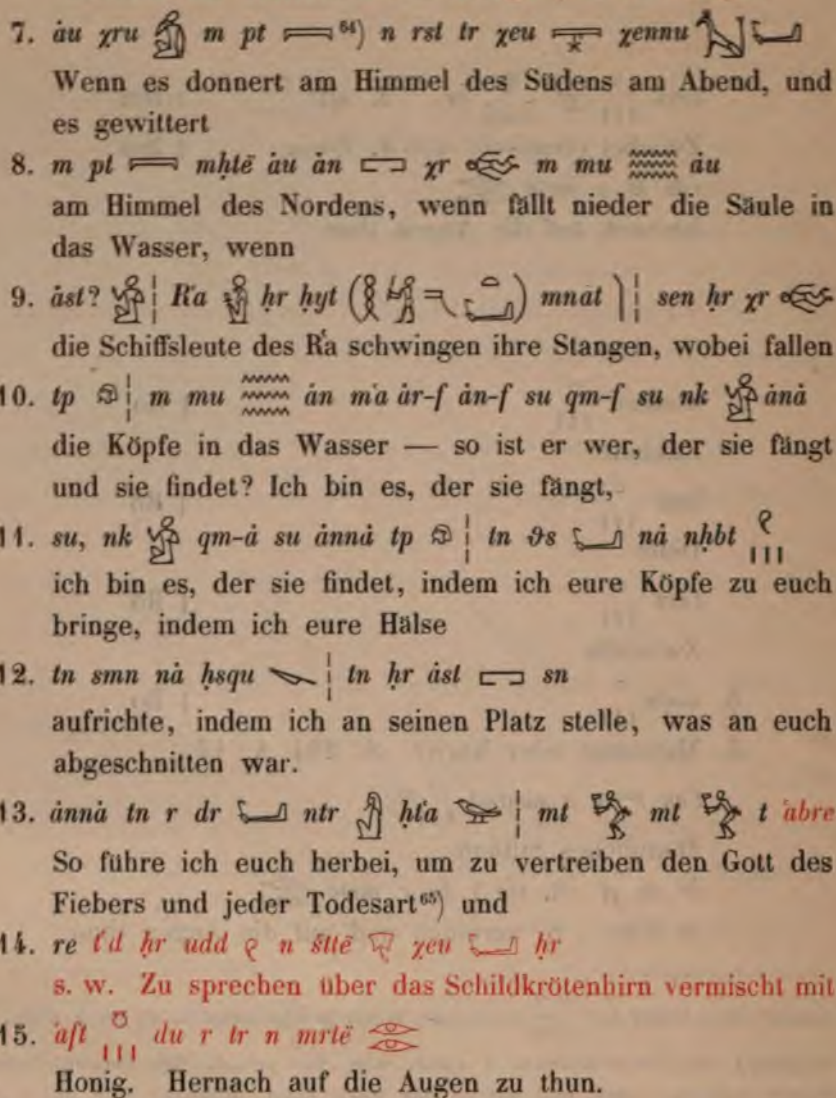 7. ȧu χru 𓀁 m pt 𓇯 ⁶⁴) n rsl tr χeu 𓇰 χennu 𓃫 𓂝
Wenn es donnert am Himmel des Südens am Abend, und
es gewittert
8. m pt 𓇯 mḥtē ȧu ȧn 𓉐 χr m mu 𓈗 ȧu
am Himmel des Nordens, wenn fällt nieder die Säule in
das Wasser, wenn
9. ȧst? Rʹa ḥr ḥyt ( ) mnāt sen ḥr χr
die Schiffsleute des Rʹa schwingen ihre Stangen, wobei fallen
10. tp 𓁶 m mu 𓈗 ȧn mʹa ȧr-f ȧn-f su qm-f su nk 𓀀 ȧnȧ
die Köpfe in das Wasser — so ist er wer, der sie fängt
und sie findet? Ich bin es, der sie fängt,
11. su, nk 𓀀 qm-ȧ su ȧnnȧ tp 𓁶 tn ϑs 𓂝 nȧ nḥbt
ich bin es, der sie findet, indem ich eure Köpfe zu euch
bringe, indem ich eure Hälse
12. tn smn nȧ ḥsqu 𓌪 tn ḥr ȧst 𓉐 sn
aufrichte, indem ich an seinen Platz stelle, was an euch
abgeschnitten war.
13. ȧnnȧ tn r dr 𓂝 ntr 𓀭 ḥtʹa 𓅪 mt 𓀐 mt 𓀐 t ʹabre
So führe ich euch herbei, um zu vertreiben den Gott des
Fiebers und jeder Todesart⁶⁵) und
14. re tʹd ḥr udd n šttē χeu 𓂝 ḥr
s. w. Zu sprechen über das Schildkrötenhirn vermischt mit
15. ʹaft du r tr n mrtē 𓁻
Honig. Hernach auf die Augen zu thun.